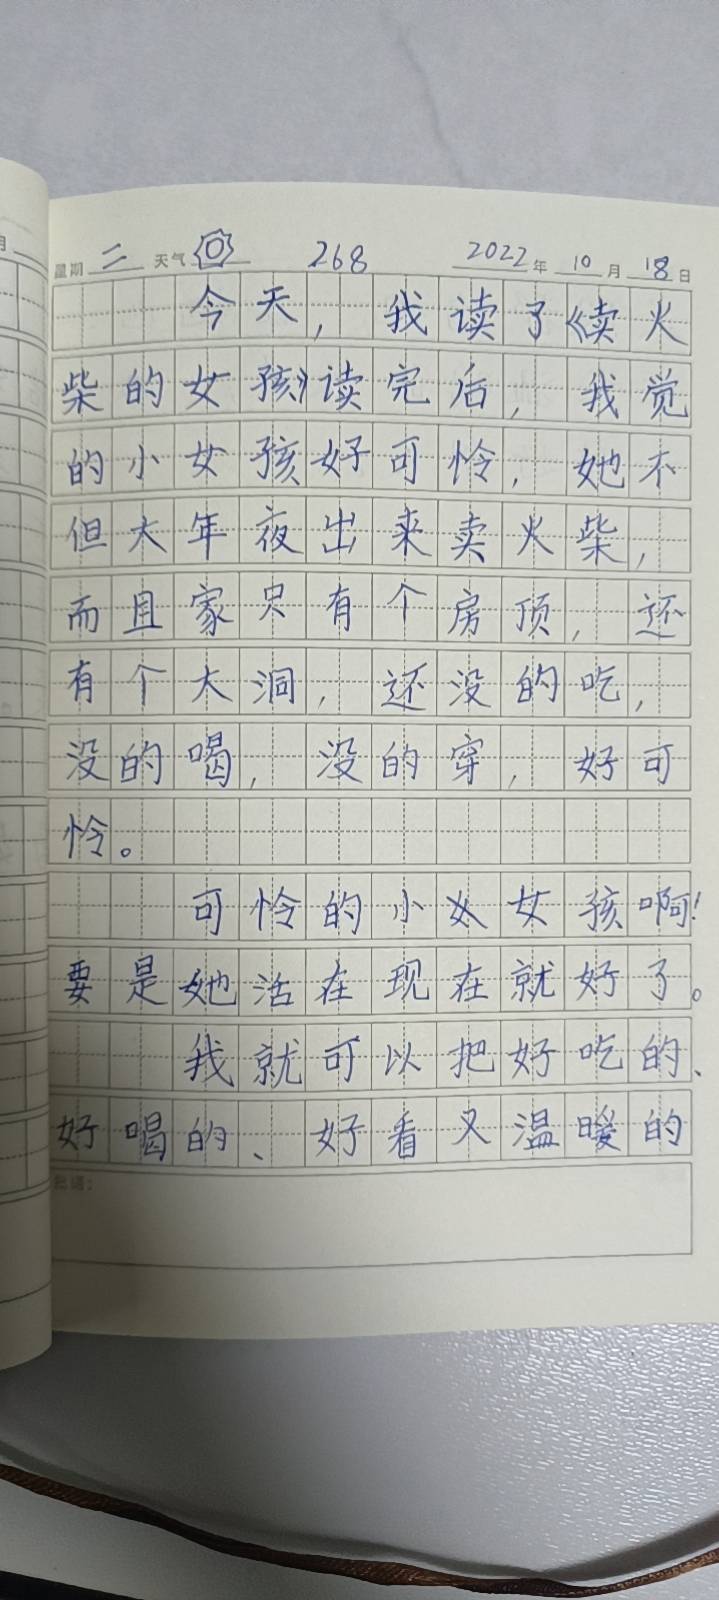 月
星期 二 天气 268 2022 年 10 月 18 日
今天，我读了《卖火
柴的女孩》读完后，我觉
的小女孩好可怜，她不
但大年夜出来卖火柴，
而且家只有个房顶，还
有个大洞，还没的吃，
没的喝，没的穿，好可
怜。
可怜的小女孩啊！
要是她活在现在就好了。
我就可以把好吃的、
好喝的、好看又温暖的
批语：